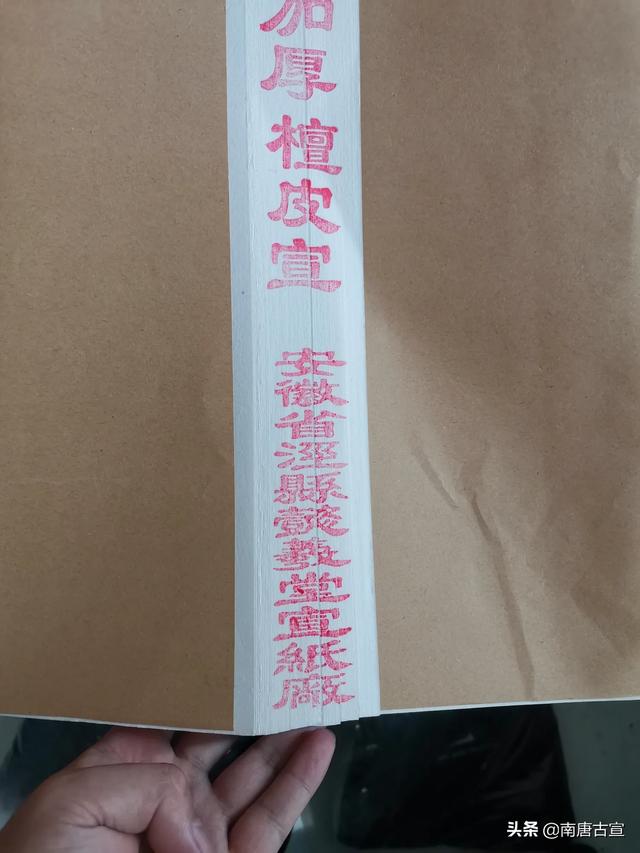 加厚檀皮宣
安徽省涇縣鼓教堂宣紙廠
头条 @南唐古宣